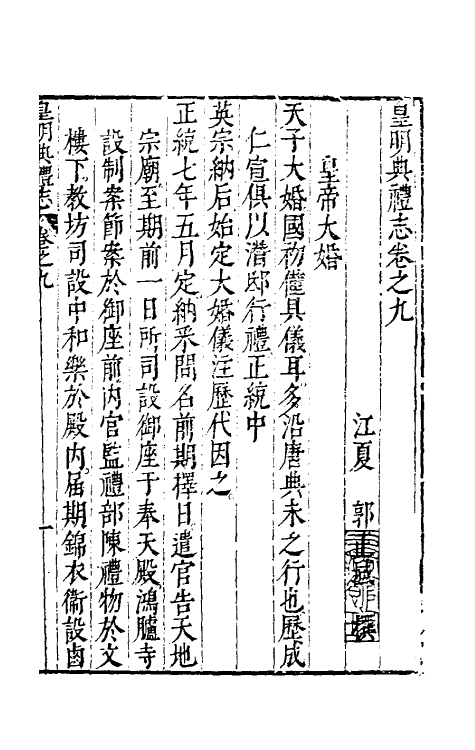 皇明典禮志卷之九
江夏 郭正域 撰
皇帝大婚
天子大婚國初僅具儀耳多沿唐典未之行也歷成
仁宣俱以潛邸行禮正統中
英宗納后始定大婚儀注歷代因之
正統七年五月定納采問名前期擇日遣官告天地
宗廟至期前一日所司設御座于奉天殿鴻臚寺
設制案節案於御座前內官監禮部陳禮物於文
樓下教坊司設中和樂於殿內届期錦衣衞設鹵
皇明典禮志 卷之九
一